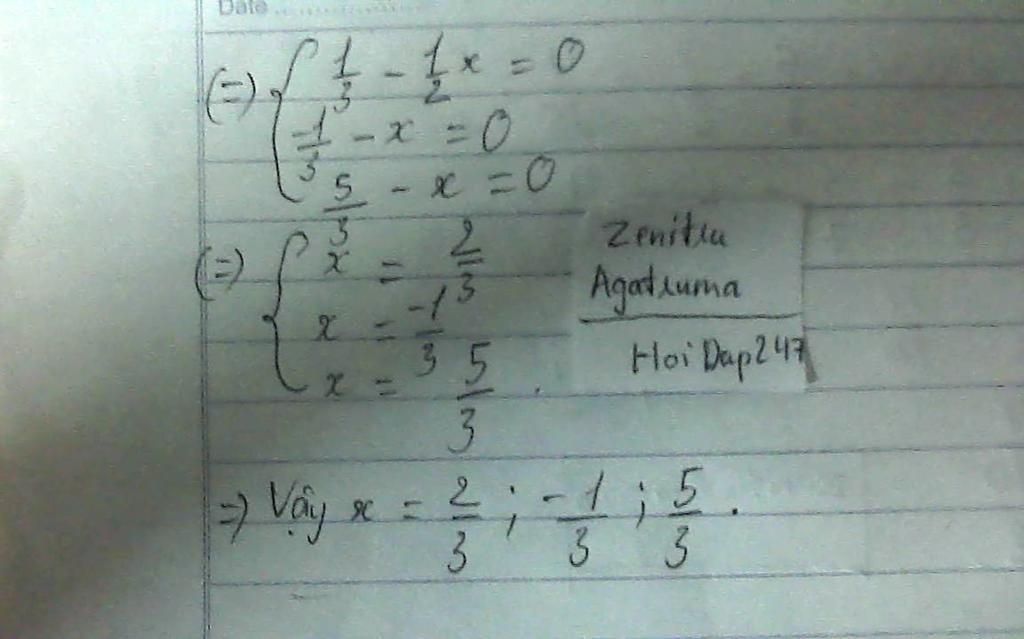 Date ................
(=) { 1/3 - 1/2 x = 0
-1/3 - x = 0
5/3 - x = 0
(=) { x = 2/3
x = -1/3
x = 5/3 .
Zenitsu
Agatsuma
HoiDap247
=) Vậy x = 2/3 ; -1/3 ; 5/3 .